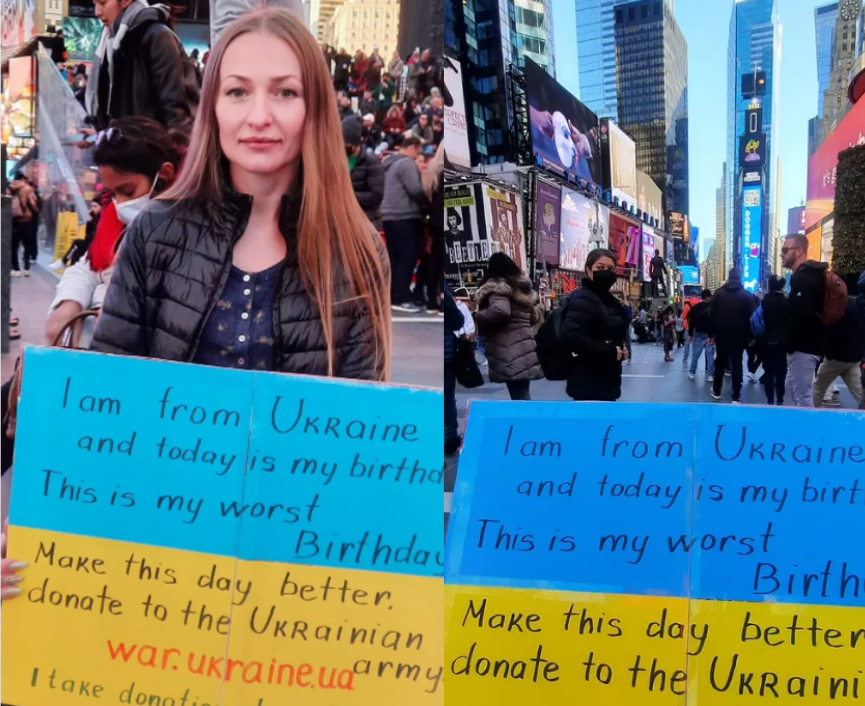 I am from UKRaine
and today is my birthd
This is my worst
Birthday
Make this day better.
donate to the UKRainian
army
war.ukraine.ua
I take donatio
BEETLE
I am from UKRaine
and today is my birt
This is my worst
Birth
Make this day better
donate to the UKRaini